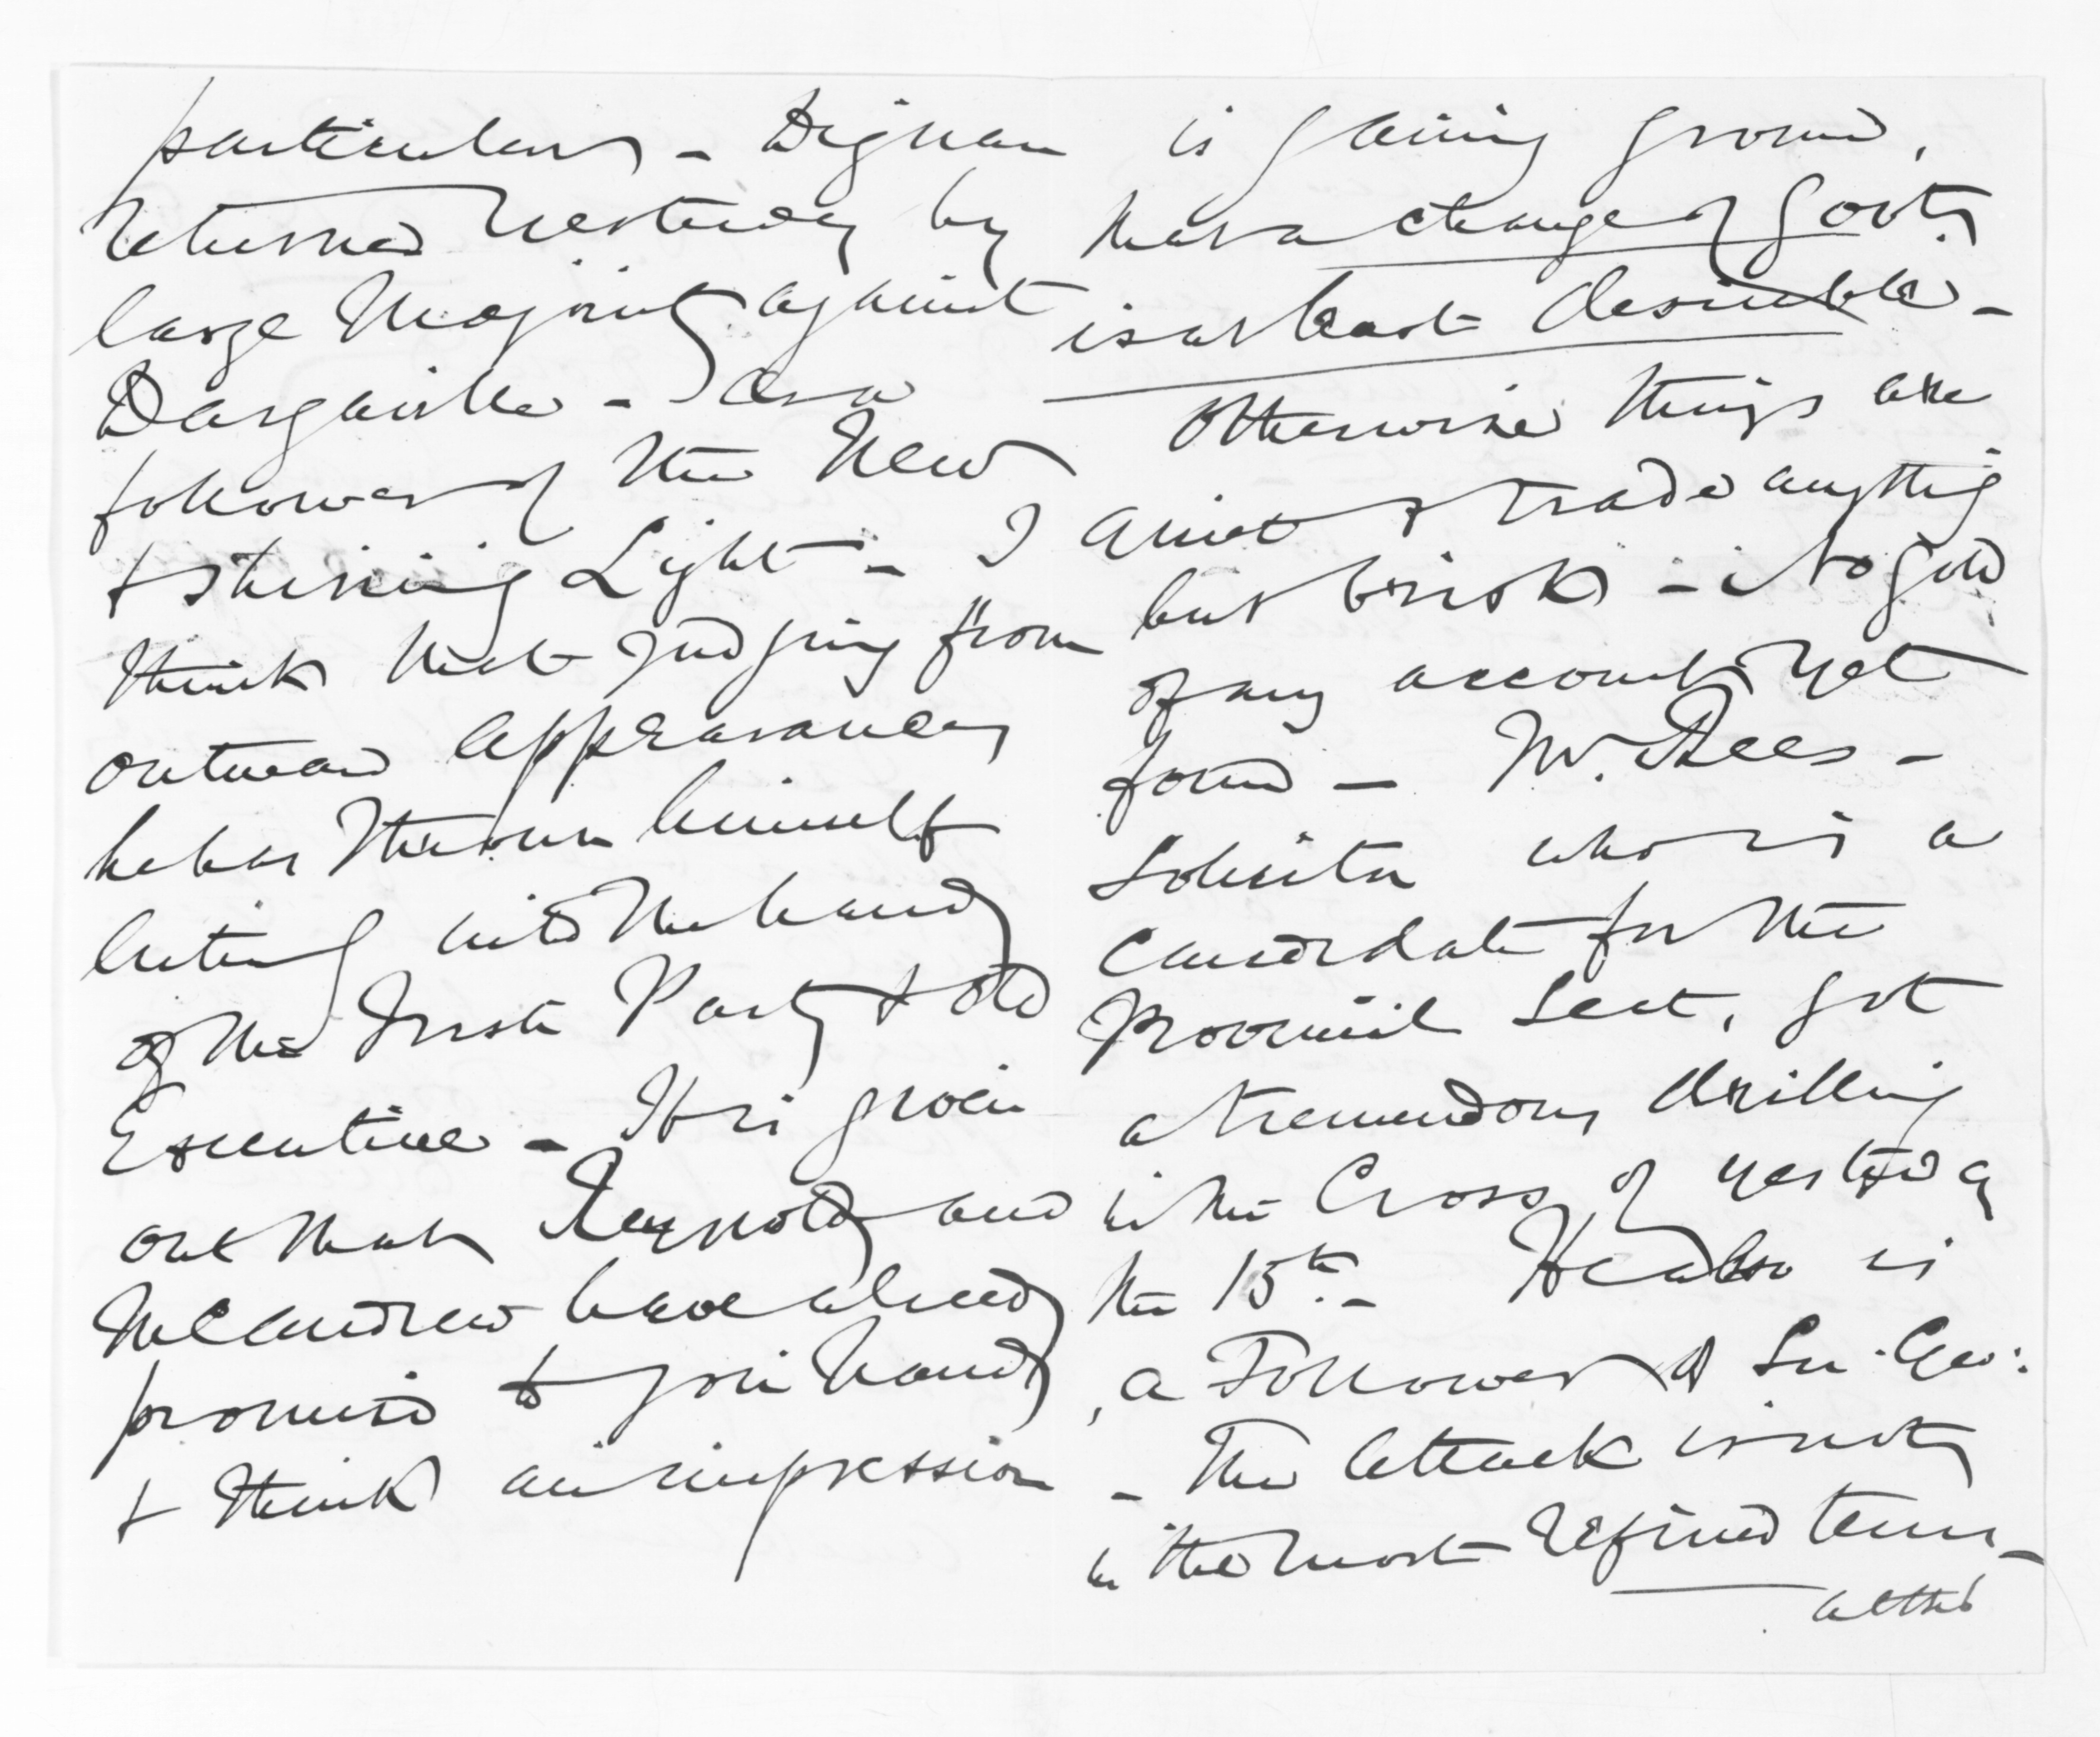 particulars - Dignan
returned yesterday by
large Majority against
Dargaville - as a
follower of the New
& Shining Light - I
think that judging from
outward appearances
he has thrown himself
into the hands
of the Irish Party & old
Executive - It is given
out that Reynolds and
McAndrew have already
promised to join hands
& think an impression
is gaining ground,
that a change of Govt.
is at least desirable -
Otherwise things are
quiet & trade anything
but brisk - No gold
of any account yet
found - Mr. Rees -
Solicitor who is a
Candidate for the
Provincial Seat, got
a tremendous drilling
in the Cross of yesterday
the 15th. - He also is
a Follower of Sir Geo:
- The attack is not
in the most refined terms -
altho'